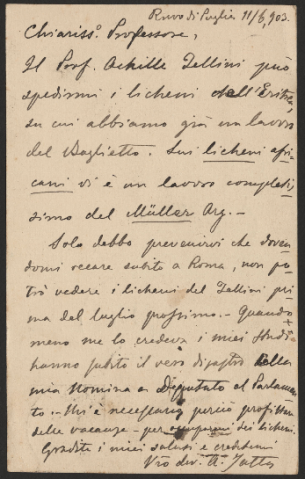 Ruvo di Puglia 11/6, 903.
Chiariss.º Professore,
Il Prof. Achille Tellini può
spedirmi i licheni dell'Eritrea,
su cui abbiamo già un lavoro
del Baglietto. Sui licheni afri-
cani vi è un lavoro completis-
simo del Müller Arg. –
Solo debbo prevenirvi che doven-
domi recare subito a Roma, non po-
trò vedere i licheni del Tellini pri-
ma del luglio prossimo. – Quando
meno me lo credeva i miei studii
hanno subito il vero disastro della
mia nomina a Deputato al Parlamen-
to. – Mi è necessario perciò profittare
delle vacanze – per occuparmi dei licheni.
Gradite i miei saluti e credetemi
Vro dev. A. Jatta